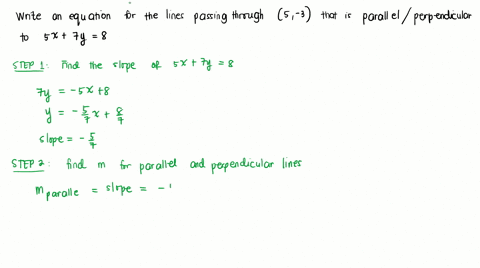 Write an equation for the lines passing through (5,-3) that is parallel/perpendicular
to 5x + 7y = 8
STEP 1: Find the slope of 5x + 7y = 8
7y = -5x+8
y = -5/7x + 8/7
slope = -5/7
STEP 2: find m for parallel and perpendicular lines
m paralle = slope = -